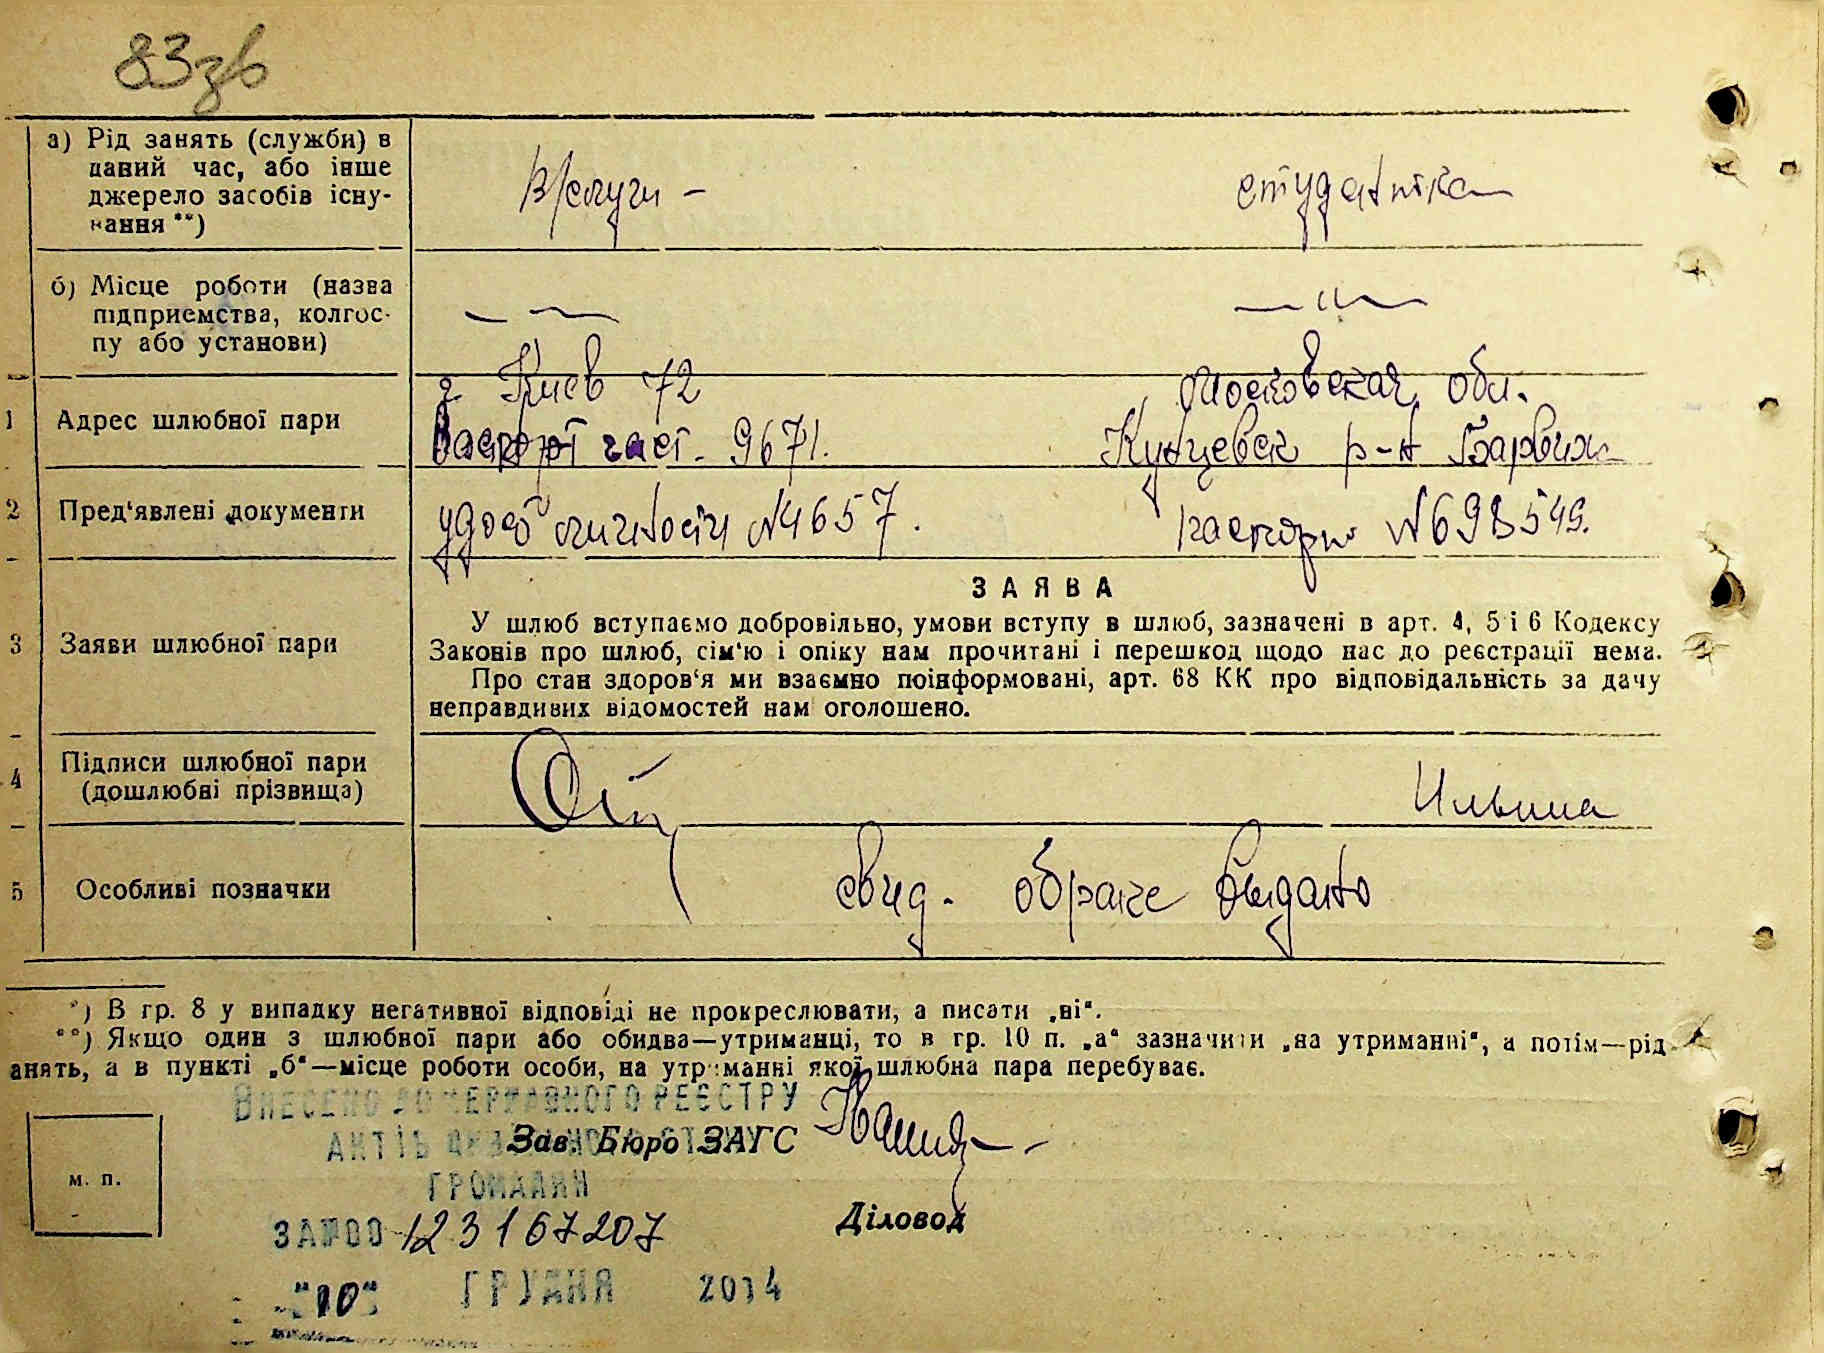 83зв
а) Рід занять (служби) в
даний час, або інше
джерело засобів існу-
вання **)
студентка
б) Місце роботи (назва
підприємства, колгос-
пу або установи)
— " —
1 Адрес шлюбної пари
г Киев 72 Московская обл.
част. 9671. р-н Барвиха
2 Пред'явлені документи
удост личности №4657. паспорт №698549.
3 Заяви шлюбної пари
ЗАЯВА
У шлюб вступаємо добровільно, умови вступу в шлюб, зазначені в арт. 4, 5 і 6 Кодексу
Законів про шлюб, сім'ю і опіку нам прочитані і перешкод щодо нас до реєстрації нема.
Про стан здоров'я ми взаємно поінформовані, арт. 68 КК про відповідальність за дачу
неправдивих відомостей нам оголошено.
4 Підписи шлюбної пари
(дошлюбні прізвища)
Ильина
5 Особливі позначки
свид. о браке выдано
*) В гр. 8 у випадку негативної відповіді не прокреслювати, а писати „ні“.
**) Якщо один з шлюбної пари або обидва—утриманці, то в гр. 10 п. „а“ зазначити „на утриманні“, а потім—рід
анять, а в пункті „б“—місце роботи особи, на утриманні якої шлюбна пара перебуває.
ВНЕСЕНО ДО ДЕРЖАВНОГО РЕЄСТРУ
Зав. Бюро ЗАГС
ГРОМАДЯН
м. п.
Діловод
ЗА №00 123167207
"10" ГРУДНЯ 2014